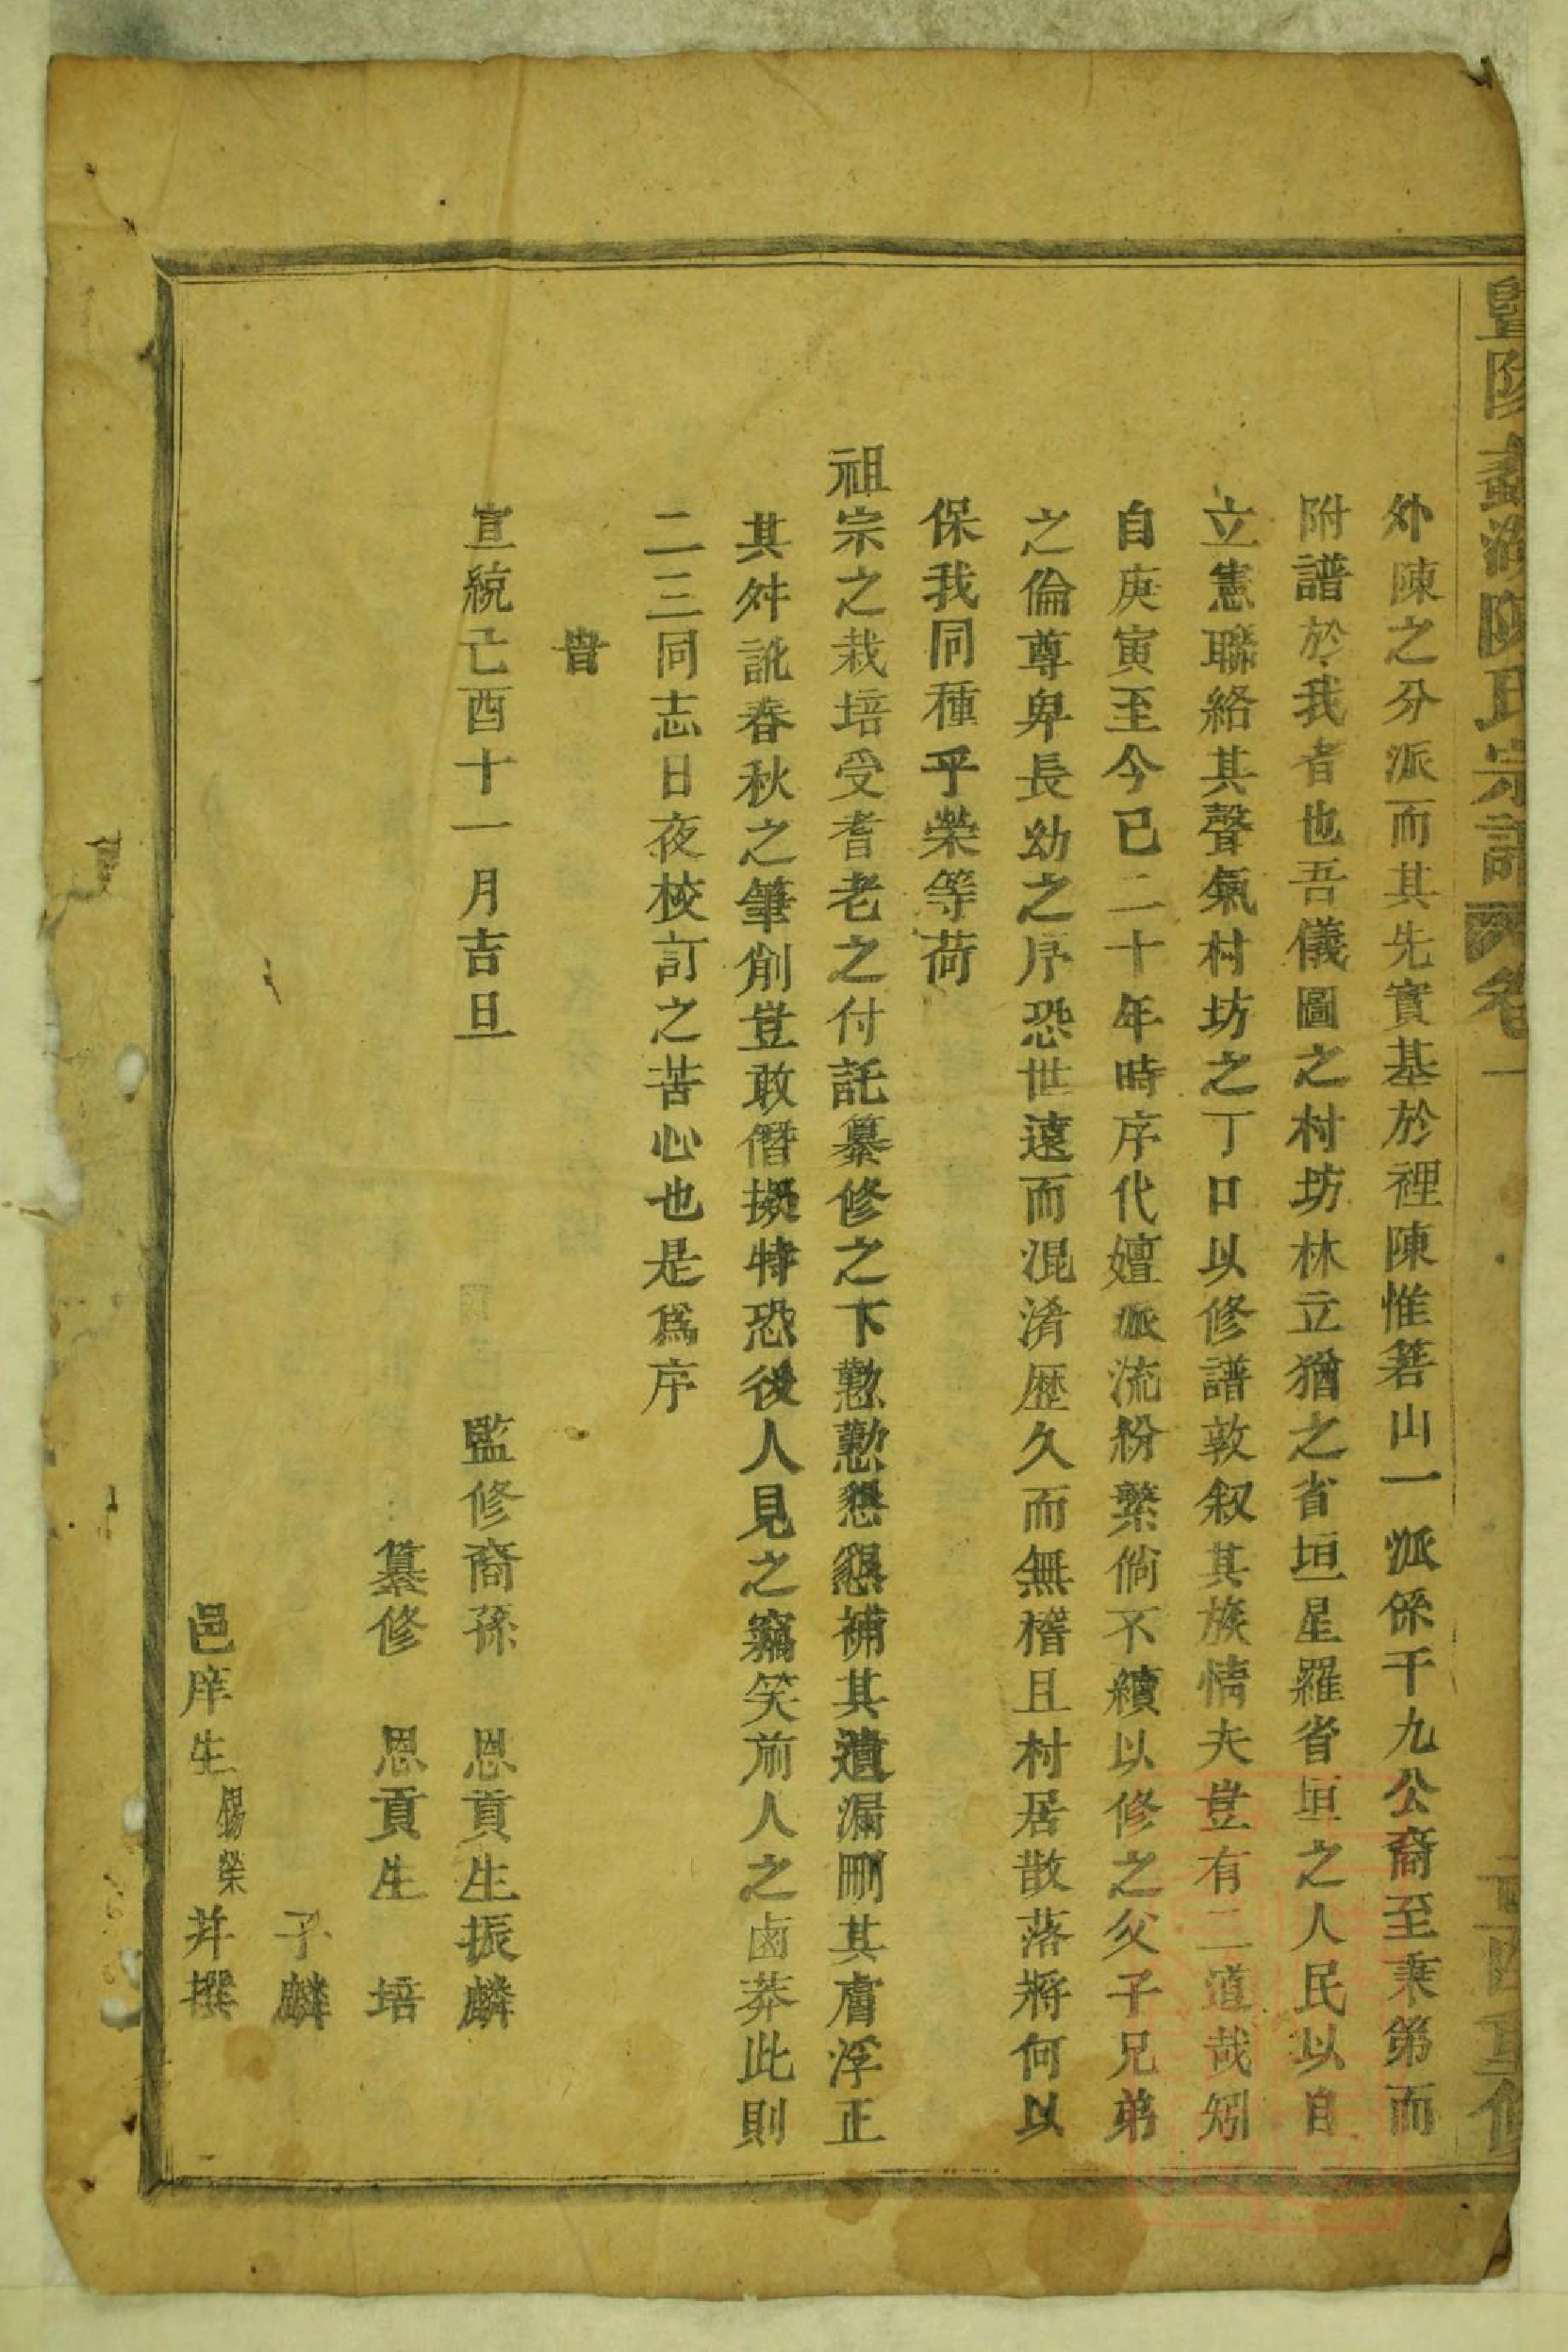 暨陽蠡湖陳氏宗譜 卷一
外陳之分派而其先實基於裡陳惟箬山一派係千九公裔至乘第而
附譜於我者也吾儀圖之村坊林立猶之省垣星羅省垣之人民以自
立憲聯絡其聲氣村坊之丁口以修譜敦叙其族情夫豈有二道哉矧
自庚寅至今已二十年時序代嬗派流紛繁倘不續以修之父子兄弟
之倫尊卑長幼之序恐世遠而混淆歷久而無稽且村居散落將何以
保我同種乎榮等荷
祖宗之栽培受耆老之付託纂修之下懃懃懇懇補其遺漏刪其膚浮正
其舛訛春秋之筆削豈敢僭擬特恐後人見之竊笑前人之鹵莽此則
二三同志日夜校訂之苦心也是爲序
旹
宣統己酉十一月吉旦
監修裔孫 恩貢生振麟
纂修 恩貢生 培
子麟
邑庠生 錫榮 并撰